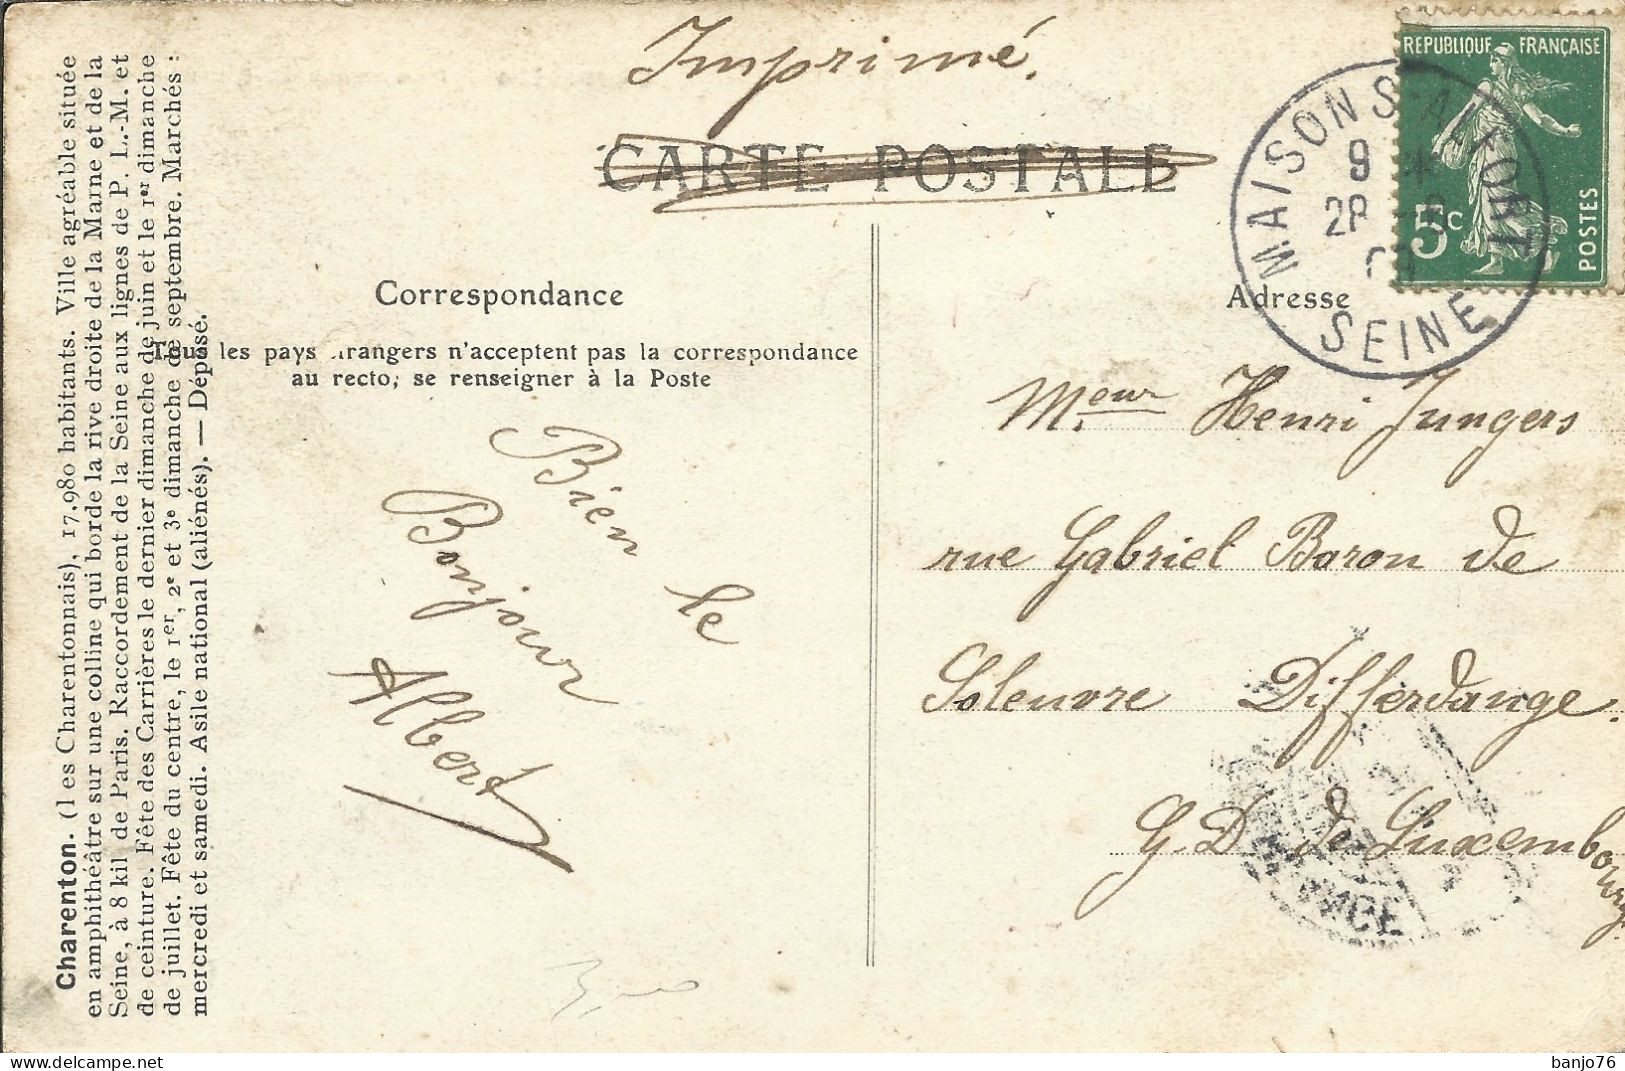 Imprimé.
CARTE POSTALE
REPUBLIQUE FRANÇAISE
5c
POSTES
MAISONS-ALFORT
9 *
SEINE
Charenton. (les Charentonnais), 17,980 habitants. Ville agréable située
en amphithéâtre sur une colline qui borde la rive droite de la Marne et de la
Seine, à 8 kil de Paris. Raccordement de la Seine aux lignes de P. L.-M. et
de ceinture. Fête des Carrières le dernier dimanche de juin et le 1er dimanche
de juillet. Fête du centre, le 1er, 2e et 3e dimanche de septembre. Marchés :
mercredi et samedi. Asile national (aliénés). — Déposé.
Correspondance
Tous les pays étrangers n'acceptent pas la correspondance
au recto, se renseigner à la Poste
Bien le
Bonjour
Albert
Adresse
Meur Henri Jungers
rue Gabriel Baron de
Soleuvre Differdange.
G.D. de Luxembourg
banjo76